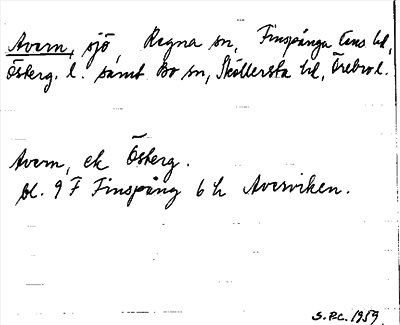 Avern, sjö, Regna sn, Finspånga läns hd,
Österg. l. samt Bo sn, Sköllersta hd, Örebro l.
Avern, ek Österg.
bl. 9 F Finspång 6 h Avernviken.
S.P.C. 1959.